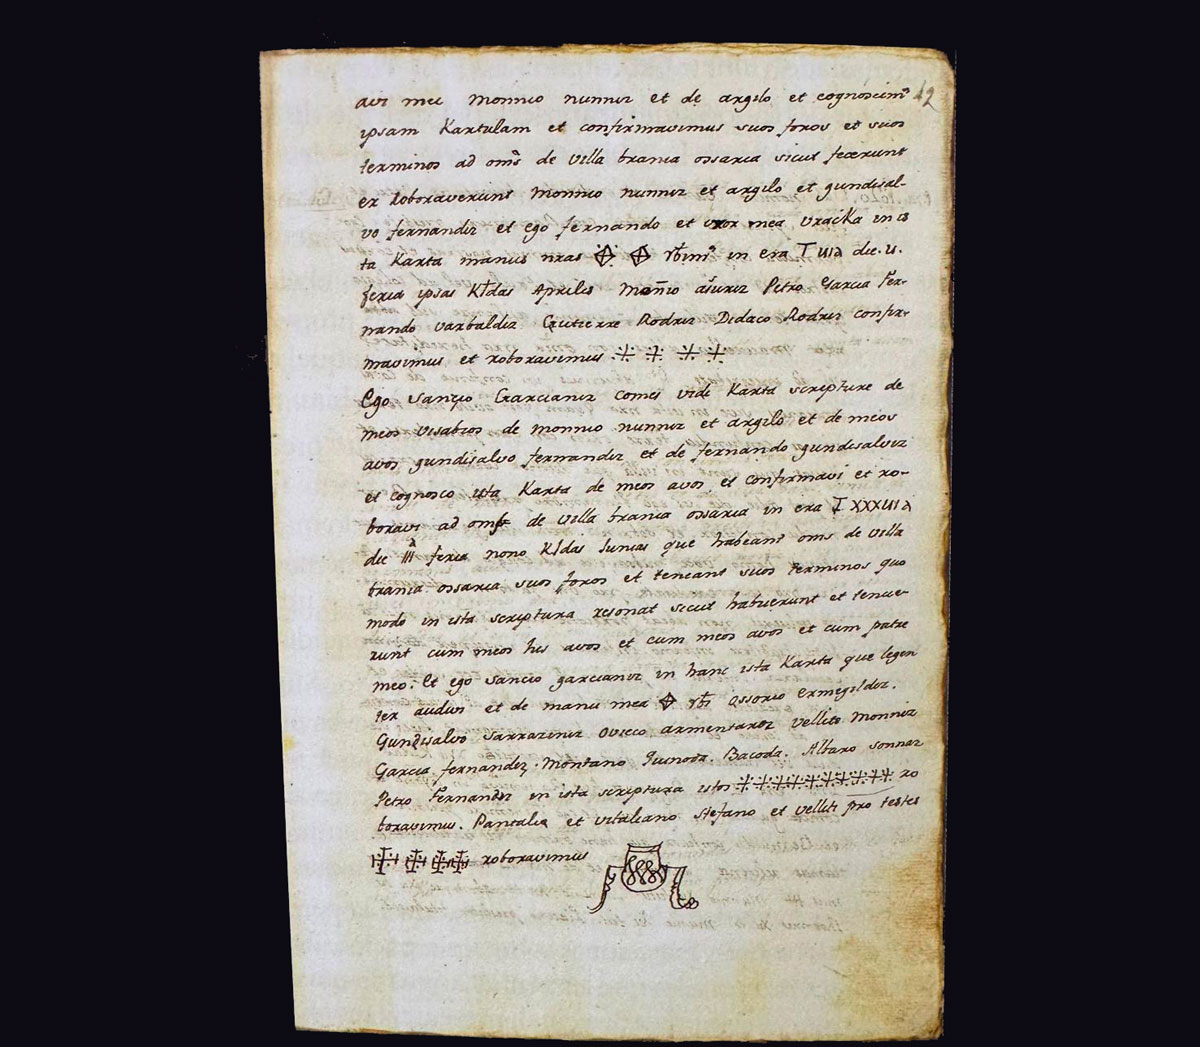 42
avi mei monnio nunniz et de argilo et cognoscimˢ
ipsam Kartulam et confirmavimus suos foros et suos
terminos ad omˢ de villa brania ossaria sicut fecerunt
et roboraverunt monnio nunniz et argilo et gundisal-
vo fernandiz et ego fernando et uxor mea vracka in is
ta Karta manus nras rbimˢ in era
feria ipsas Kldas Aprilis Moñio asuriz Petro Garcia Fer-
nando varbaldiz Gutierre Rodriz Didaco Rodriz confir-
mavimus et roboravimus
Ego Sancio Garcianiz comes vidi Karta scripture de
meos visabios de monnio nunniz et argilo et de meos
avos gundisalvo fernandiz et de fernando gundisalviz
et cognosco ista Karta de meos avos et confirmavi et ro-
boravi ad oms de villa brania ossaria in era
die IIIª feria nono Kldas Iunias que habeant oms de villa
brania ossaria suos foros et teneant suos terminos quo
modo in ista scriptura resonat sicut habuerunt et tenue-
runt cum meos bis avos et cum meos avos et cum patre
meo. Et ego Sancio garcianiz in hanc ista Karta que legen
ter audivi et de manu mea rbi ossorio ermegildiz.
Gundisalvo sarraziniz Ovieco armentariz vellito monniz
Garcia fernandiz. Montano Bacoda. Albaro sonnaz
Petro Fernandiz in ista scriptura istos ro
boravimus. Pantalia et vitaliano stefano et velliti pro testes
roboravimus